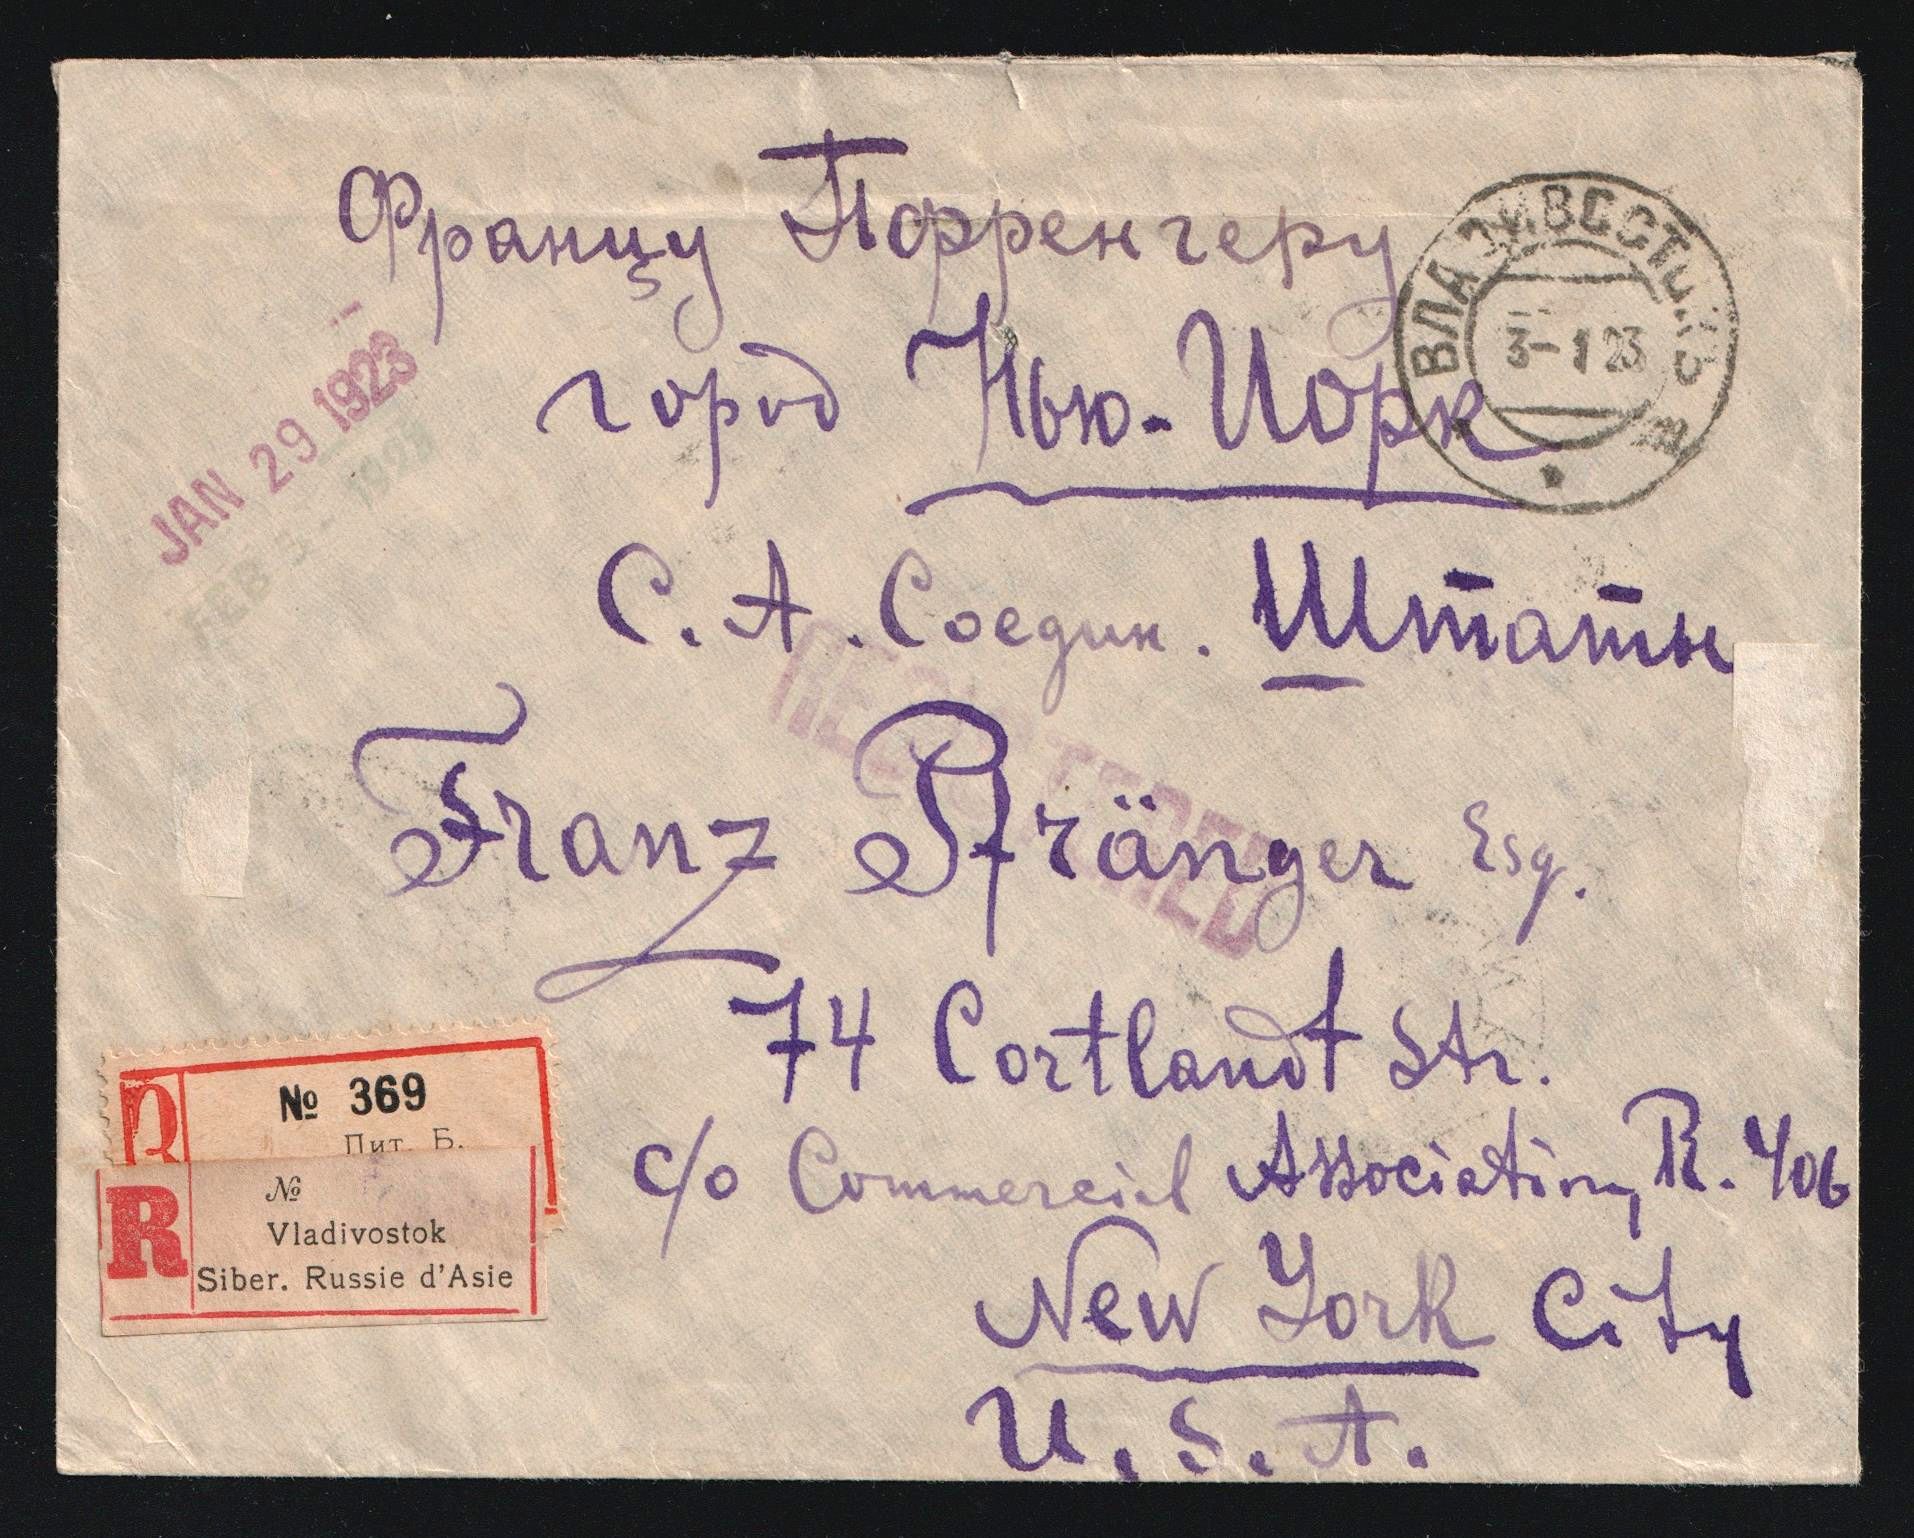 Францу Порренгеру
город Нью-Иорк
С. А. Соедин. Штаты
Franz Pfränger Esq.
74 Cortlandt Str.
c/o Commercial Association, R. 406
New York City
U. S. A.
ВЛАДИВОСТОКЪ
3-1 23
JAN 29 1923
FEB 3 - 1923
REGISTERED
№ 369
Пит. Б.
R №
Vladivostok
Siber. Russie d'Asie